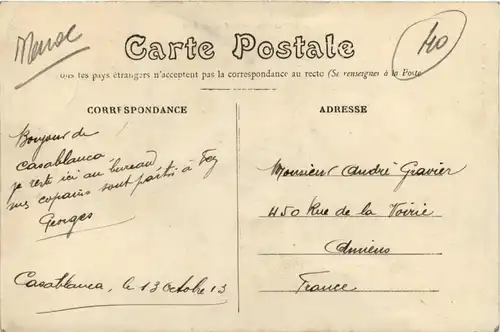 Meuse
40
Carte Postale
ous les pays étrangers n'acceptent pas la correspondance au recto (Se renseigner à la Poste
CORRESPONDANCE
Bonjour de
Casablanca
je reste ici au bureau
mes copains sont partis à Fez
Georges
Casablanca, le 13 Octobre 13
ADRESSE
Monsieur André Gravier
450 Rue de la Voirie
Amiens
France